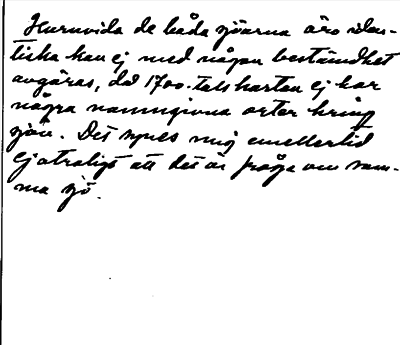 Huruvida de båda sjöarna äro iden-
tiska kan ej med någon bestämdhet
avgöras, då 1700-talskartan ej har
några namngivna orter kring
sjön. Det synes mig emellertid
ej otroligt att det är fråga om sam-
ma sjö.